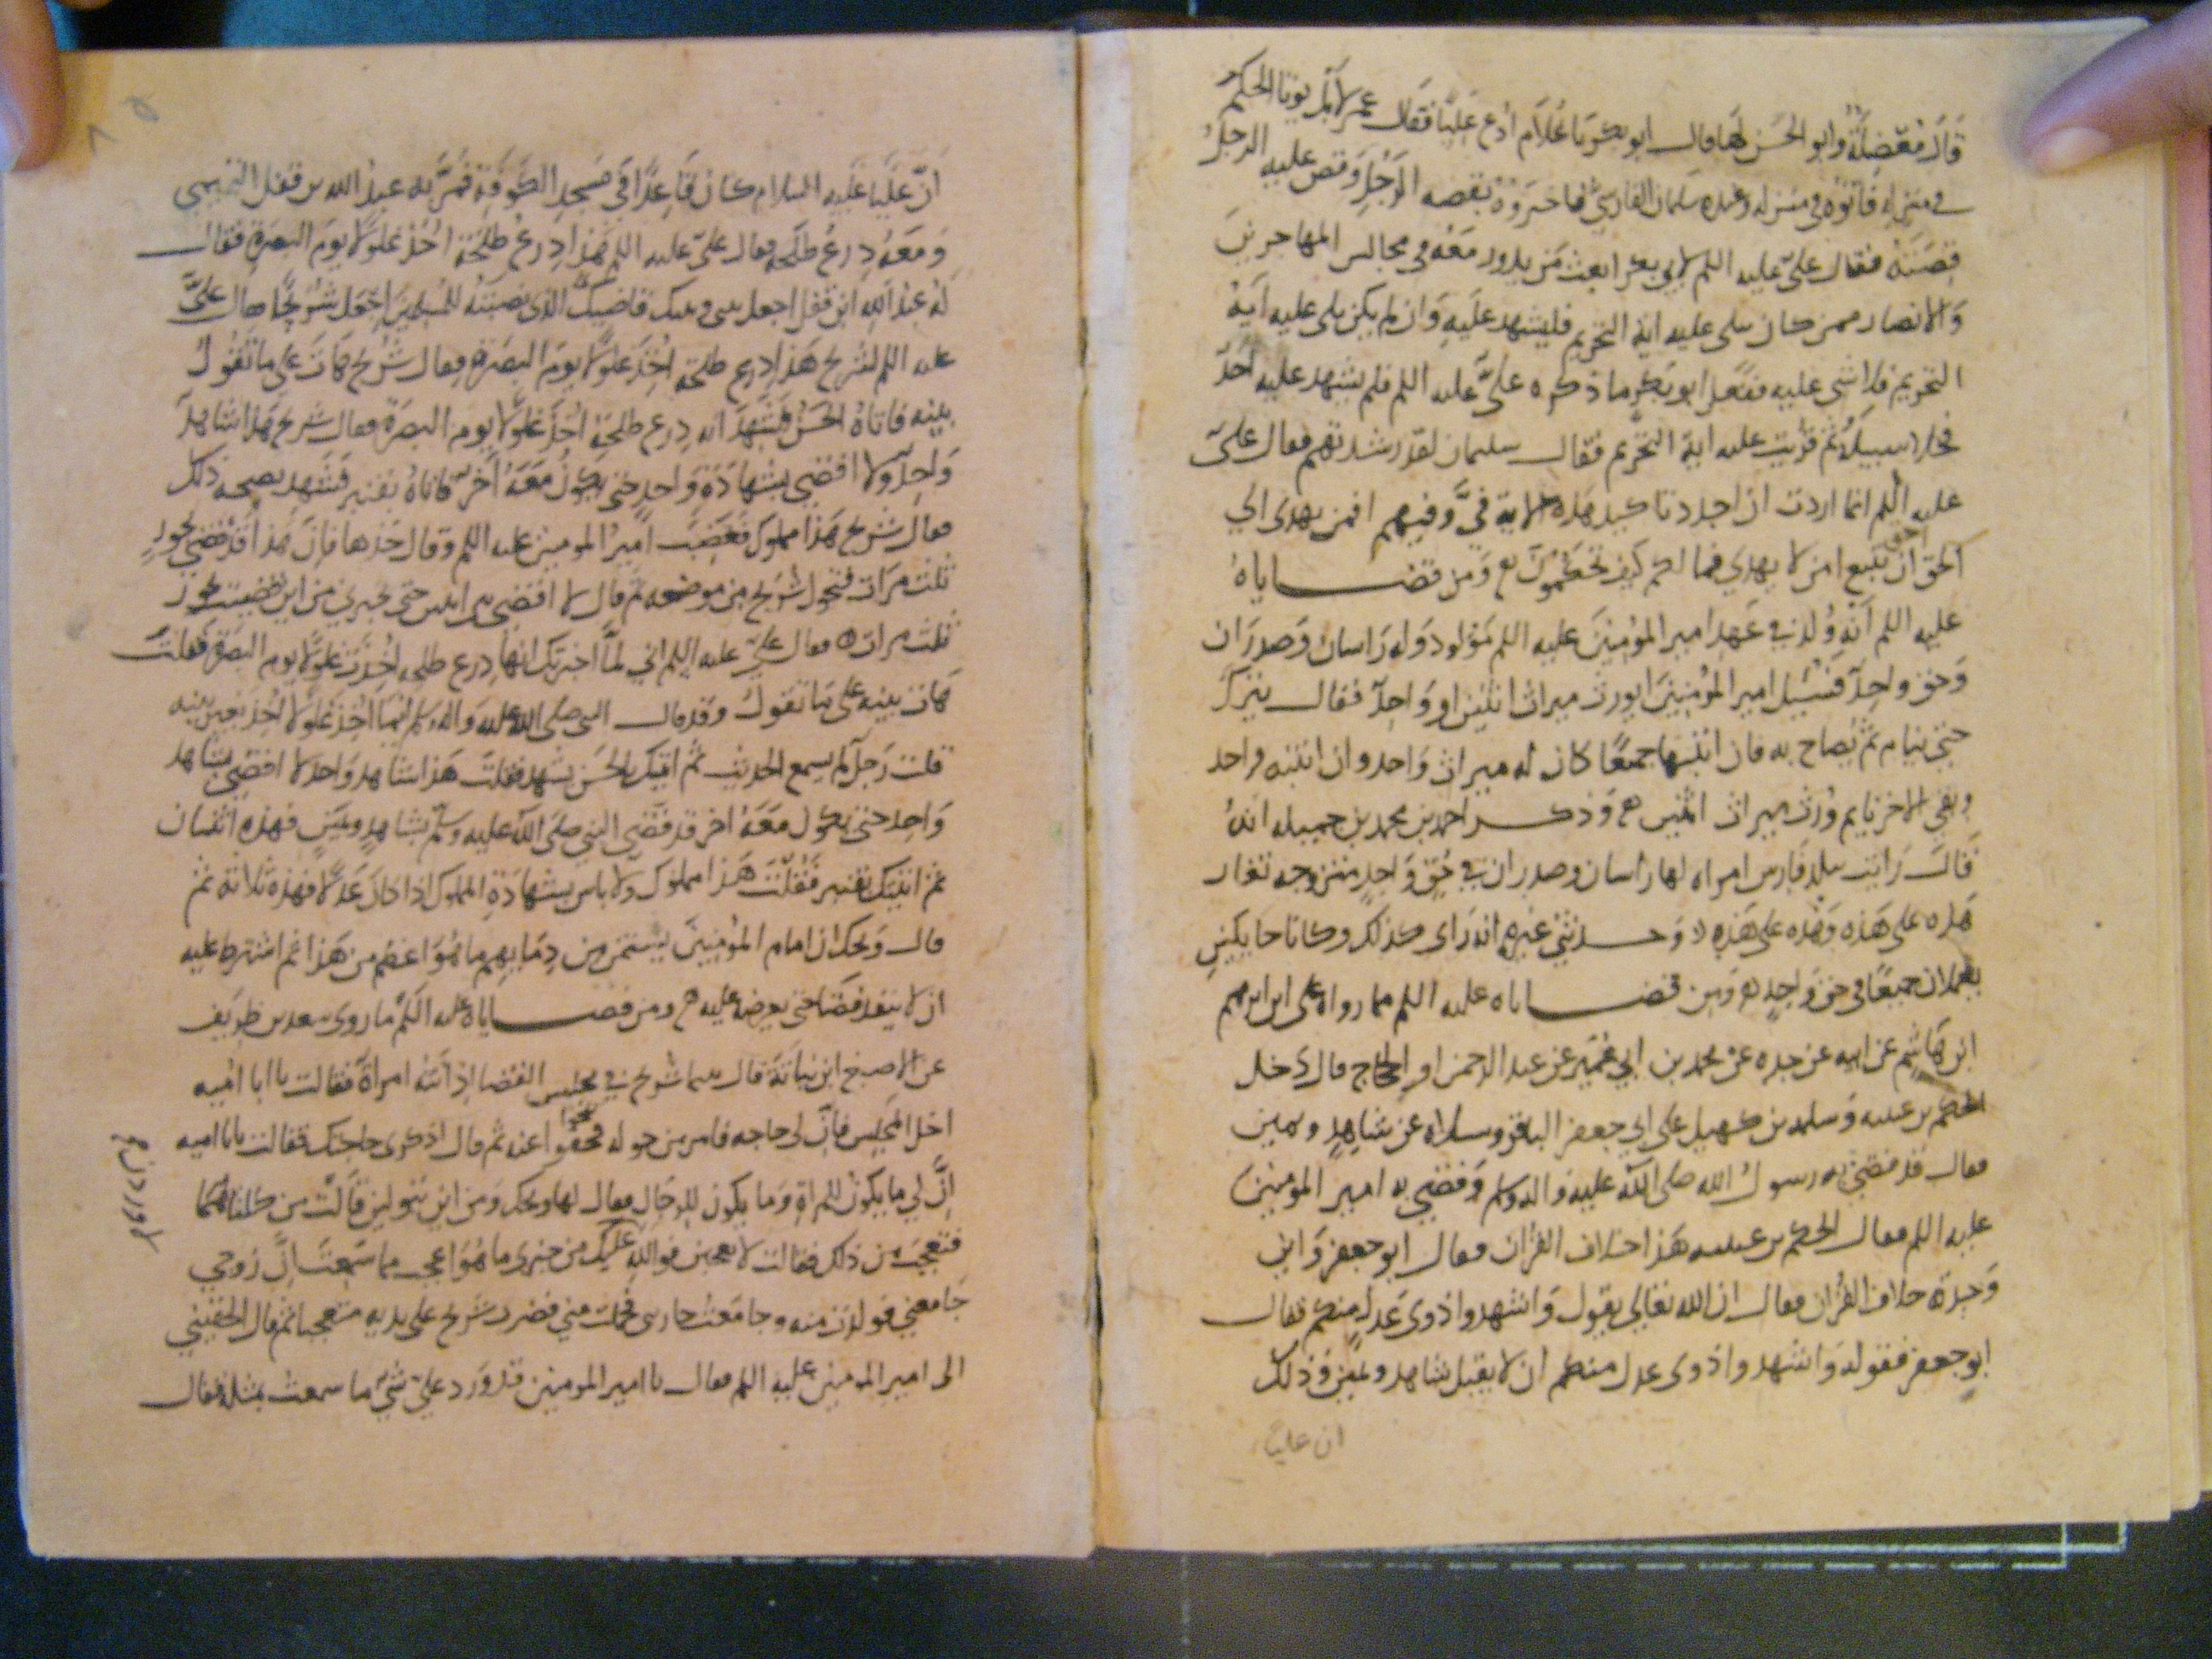 قال معضلة وابو الحسن لها فقال ابو بكر يا غلام ادع عليا فقال عمر لا بل يوتا الحكم
في منزله فاتوه في منزله وعنده سلمان الفارسي فاخبروه بقصه الرجل وقص عليه الرجل
قصته فقال علي عليه السلم لابي بكر ابعث من يدور معه في مجالس المهاجرين
والانصار ممن كان تلى عليه اية التحريم فليشهد عليه وان لم يكن تلى عليه اية
التحريم فلا شي عليه ففعل ابو بكر ما ذكره علي عليه السلم فلم يشهد عليه احد
فخلا سبيله ثم قريت عليه اية التحريم فقال سليمان لقد ارشدتهم فقال علي
عليه السلم انما اردت ان اجدد تاكيد هذه الاية في وفيهم افمن يهدى الي
الحق احق ان يتبع امن لا يهدي فما لكم كيف تحكمون ومن قضاياه
عليه السلم انه ولد في عهد امير المؤمنين عليه السلم مولود وله راسان وصدران
وحقو واحد فسئيل امير المؤمنين ايورث ميراث اثنين او واحد فقال يترك
حتى ينام ثم يصاح به فان انتبها جميعا كان له ميراث واحد وان انتبه واحد
وبقي الاخر نايم ورث ميراث اثنين وذكر احمد بن محمد بن جميله انه
قال رايت بفارس امراه لها راسان وصدران في حقو واحد متزوجه تغار
هذه على هذه وهذه على هذه وحدثني غيره انه راى كذلك وكانا حايكين
يعملان جميعا في حقو واحد ومن قضاياه عليه السلم مما رواه علي ابن ابرهيم
ابن هاشم عن ابيه عن جده عن محمد بن ابي عمير عن عبد الرحمن ابو الحجاج قال دخل
الحكم بن عيينه وسلمه بن كهيل على ابي جعفر الباقر وسلاه عن شاهد ويمين
فقال قد قضى به رسول الله صلى الله عليه واله وسلم وقضى به امير المومنين
عليه السلم فقال الحكم بن عيينه هذا خلاف القران فقال ابو جعفر واين
وجدته خلاف القران فقال ان الله تعالى يقول واشهدوا ذوى عدل منكم فقال
ابو جعفر فقوله واشهدوا ذوى عدل منكم ان لا يقبل شاهد ويمين وذلك
ان عليا
ان عليا عليه السلام كان قاعدا في مسجد الكوفة فمر به عبد الله بن قفل التميمي
ومعه درع طلحه فقال علي عليه السلم هذا درع طلحة اخذ غلولا يوم البصرة فقال
له عبد الله ابن قفل اجعل بيني وبينك قاضيك الذي نصبته للمسلمين فجعل شريحا فقال علي
عليه السلم لشريح هذا درع طلحة اخذ غلولا يوم البصرة فقال شريح هات على ما تقول
بينه فاتاه الحسن فشهد انه درع طلحة اخذ غلولا يوم البصرة فقال شريح هذا شاهد
واحد ولا اقضي بشهادة واحد حتى يكون معه اخر فاتاه بقنبر فشهد بصحه ذلك
فقال شريح هذا مملوك فغضب امير المومنين عليه السلم وقال خذها فان هذا قد قضى بجور
ثلث مرات فتحول شريح من موضعه ثم قال لا اقضي بين اثنين حتى تخبرني من اين قضيت بجور
ثلث مرات فقال علي عليه السلم اني لما اخبرتك انها درع طلحه اخذت غلولا يوم البصرة فقلت
هات بينه على ما تقول وقد قال النبي صلى الله عليه واله وسلم اينما اخذ غلولا اخذ بغير بينه
فقلت رجل لم يسمع الحديث ثم اتيتك بالحسن يشهد فقلت هذا شاهد واحد لا اقضي بشاهد
واحد حتى يكون معه اخر قد قضى النبي صلى الله عليه وسلم بشاهد ويمين فهذه اثنتان
ثم اتيتك بقنبر فقلت هذا مملوك ولا باس بشهادة المملوك اذا كان عدلا فهذه ثلاثة ثم
قال ويحك ان امام المؤمنين يستمن من دمايهم ما هو اعظم من هذا ثم اشترط عليه
ان لا ينفذ قضا حتى يعرضه عليه ومن قضاياه عليه السلم ما روى سعد بن ظريف
عن الاصبغ ابن نباتة قال بينما شريح في مجلس القضا اذ اتته امراة فقالت يا ابا اميه
اخل المجلس فان لي حاجه فامر من حوله فخفوا عنه ثم قال اذكري حاجتك فقالت يابا اميه
ان لي ما يكون للمراة وما يكون للرجال فقال لها ويحك ومن اين تبولين قالت من كلتاهما
فتعجب من ذلك فقالت لا تعجبن فوالله عليك من خبري ما هو اعجب مما سمعت ان زوجي
جامعني فولدت منه وجامعت جاريتي فحملت مني فضرب شريح على يديه متعجبا ثم قال الحقيني
الى امير المومنين عليه السلم فقال يا امير المومنين قد ورد علي شي ما سمعت بمثله فقال